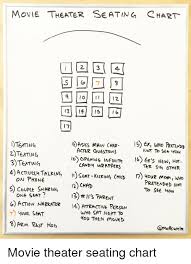 MOVIE THEATER SEATING CHART
1 2 3 4
5 6 7 8
9 10 11 12
13 14 15 16
17
1) TEXTING
2) TEXTING
3) TEXTING
4) ACTUALLY TALKING
ON PHONE
5) COUPLE SHARING
ONE SEAT?
6) ACTION NARRATER
7) YOUR SEAT
8) ARM REST HOG
9) ASKS MAIN CHAR-
ACTER QUESTIONS
10) OPENING INFINITE
CANDY WRAPPERS
11) SEAT-KICKING CHAD
12) CHAD
13) #11'S PARENT
14) ATTRACTIVE PERSON
WHO SAT NEXT TO
YOU THEN MOVED
15) EX, WHO PRETENDS
NOT TO SEE YOU
16) EX'S NEW, HOT-
TER SIG OTHER
17) YOUR MOM, WHO
PRETENDED NOT
TO SEE YOU
Movie theater seating chart